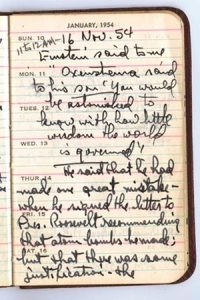 JANUARY, 1954
SUN. 10
11 to 12 AM - 16 Nov. 54
Einstein said to me
MON. 11
" Oxenstierna said
to his son: 'You would
TUES. 12
be astonished to
know with how little
wisdom the world
WED. 13
is governed'!
He said that he had
THUR. 14
made one great mistake -
when he signed the letter to
FRI. 15
Pres. Roosevelt recommending
that atom bombs be made;
SAT. 16
but that there was some
justification - the